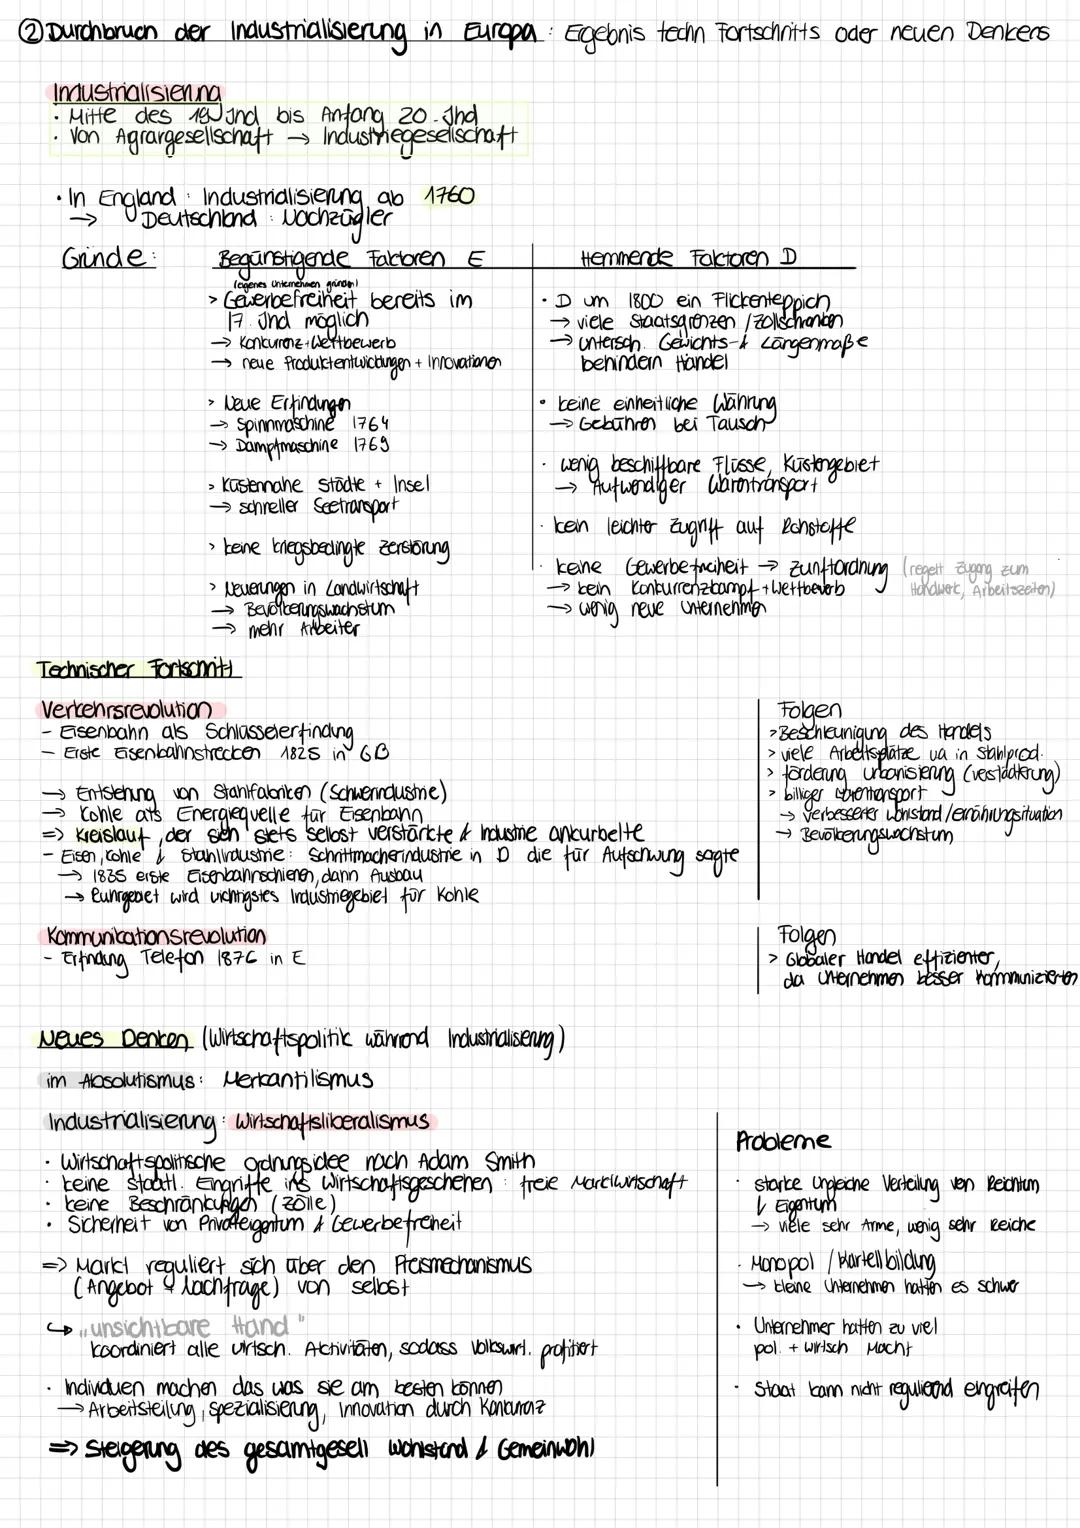 ② Durchbruch der Industrialisierung in Europa : Ergebnis techn Fortschritts oder neuen Denkens
Industrialisierung
· Mitte des 18/19 Jhd bis Anfang 20. Jhd
· Von Agrargesellschaft → Industriegesellschaft
· In England : Industrialisierung ab 1760
→ Deutschland : Nachzügler
Gründe:
Begünstigende Faktoren E
(eigenes Unternehmen gründen)
> Gewerbefreiheit bereits im
17. Jhd möglich
→ Konkurrenz + Wettbewerb
→ neue Produktentwicklungen + Innovationen
> Neue Erfindungen
→ Spinnmaschine 1764
→ Dampfmaschine 1769
> Küstennahe Städte + Insel
→ schneller Seetransport
> keine kriegsbedingte Zerstörung
> Neuerungen in Landwirtschaft
→ Bevölkerungswachstum
→ mehr Arbeiter
Hemmende Faktoren D
· D um 1800 ein Flickenteppich
→ viele Staatsgrenzen / Zollschranken
→ untersch. Gewichts- & Längenmaße
behindern Handel
· keine einheitliche Währung
→ Gebühren bei Tausch
· wenig beschiffbare Flüsse, Küstengebiet
→ Aufwendiger Warentransport
· kein leichter Zugriff auf Rohstoffe
· keine Gewerbefreiheit → Zunftordnung (regelt Zugang zum
Handwerk, Arbeitszeiten)
→ kein Konkurrenzkampf + Wettbewerb
→ wenig neue Unternehmen
Technischer Fortschritt
Verkehrsrevolution
- Eisenbahn als Schlüsselerfindung
- Erste Eisenbahnstrecken 1825 in GB
→ Entstehung von Stahlfabriken (Schwerindustrie)
→ Kohle als Energiequelle für Eisenbahn
=> Kreislauf, der sich stets selbst verstärkte & Industrie ankurbelte
- Eisen, Kohle & Stahlindustrie: Schrittmacherindustrie in D die für Aufschwung sorgte
→ 1835 erste Eisenbahnschienen, dann Ausbau
→ Ruhrgebiet wird wichtigstes Industriegebiet für Kohle
Folgen
> Beschleunigung des Handels
> viele Arbeitsplätze ua in Stahlprod.
> förderung urbanisierung (verstädterung)
> billiger warentransport
→ verbesserter wohlstand/ernährungsituation
→ Bevölkerungswachstum
Kommunikationsrevolution
- Erfindung Telefon 1876 in E
Folgen
> Globaler Handel effizienter,
da Unternehmen besser kommunizierten
Neues Denken (Wirtschaftspolitik während Industrialisierung)
im Absolutismus: Merkantilismus
Industrialisierung : Wirtschaftsliberalismus
· Wirtschaftspolitische Ordnungsidee nach Adam Smith
· keine staatl. Eingriffe ins Wirtschaftsgeschehen : freie Marktwirtschaft
· keine Beschränkungen (Zölle)
· Sicherheit von Privateigentum & Gewerbefreiheit
=> Markt reguliert sich über den Preismechanismus
(Angebot & Nachfrage) von selbst
↳ "unsichtbare Hand"
koordiniert alle wirtsch. Aktivitäten, sodass Volkswirt. profitiert
· Individuen machen das was sie am besten können
→ Arbeitsteilung, Spezialisierung, Innovation durch Konkurenz
=> Steigerung des gesamtgesell Wohlstand & Gemeinwohl
Probleme
· starke ungleiche Verteilung von Reichtum
& Eigentum
→ viele sehr Arme, wenig sehr Reiche
· Monopol / Kartellbildung
→ kleine Unternehmen hatten es schwer
· Unternehmer hatten zu viel
pol. + wirtsch Macht
· Staat kann nicht regulierend eingreifen